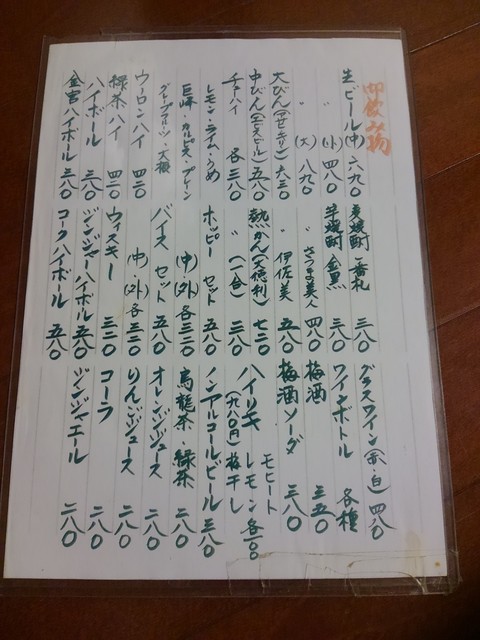 御飲み物
生ビール(中) 六九〇
〃 (小) 四八〇
〃 (大) 八九〇
大びん(アサヒ・キリン) 六三〇
中びん(エビスビール) 五八〇
チューハイ 各三八〇
レモン・ライム・うめ
巨峰・カルピス・プレーン
グレープフルーツ・大根
ウーロンハイ 四三〇
緑茶ハイ 四三〇
ハイボール 三八〇
金宮ハイボール 三八〇
麦焼酎 一番札 三八〇
芋焼酎 金黒 三八〇
〃 さつま美人 四八〇
〃 伊佐美 五八〇
熱かん(大徳利) 七二〇
〃 (一合) 三八〇
ホッピーセット 五八〇
(中)・(外)各三二〇
バイスセット 五八〇
(中)・(外)各三二〇
ウィスキー 三二〇
ジンジャーハイボール 五八〇
コークハイボール 五八〇
グラスワイン(赤・白) 四八〇
ワインボトル 各種
梅酒 三五〇
梅酒ソーダ 三八〇
モヒート
ハイリキ レモン 各一〇〇
(九八〇円) 梅干し
ノンアルコールビール 三八〇
烏龍茶・緑茶 二八〇
オレンジジュース 二八〇
りんごジュース 二八〇
コーラ 二八〇
ジンジャエール 二八〇